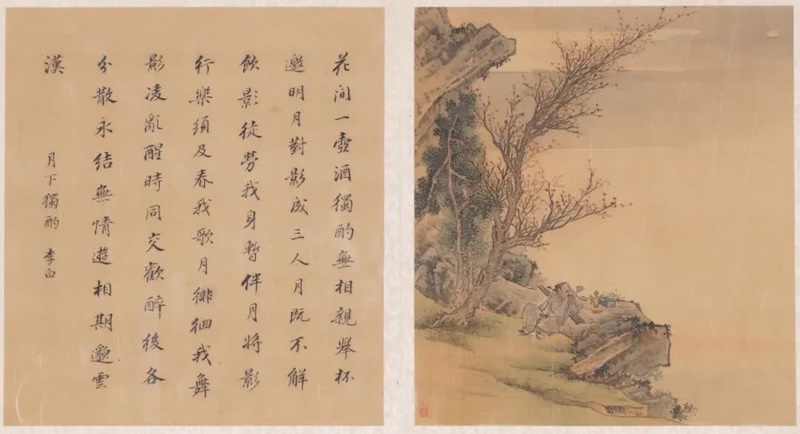 花間一壺酒獨酌無相親舉杯
邀明月對影成三人月既不解
飲影徒勞我身暫伴月將影
行樂須及春我歌月徘徊我舞
影凌亂醒時同交歡醉後各
分散永結無情遊相期邈雲
漢
月下獨酌 李白